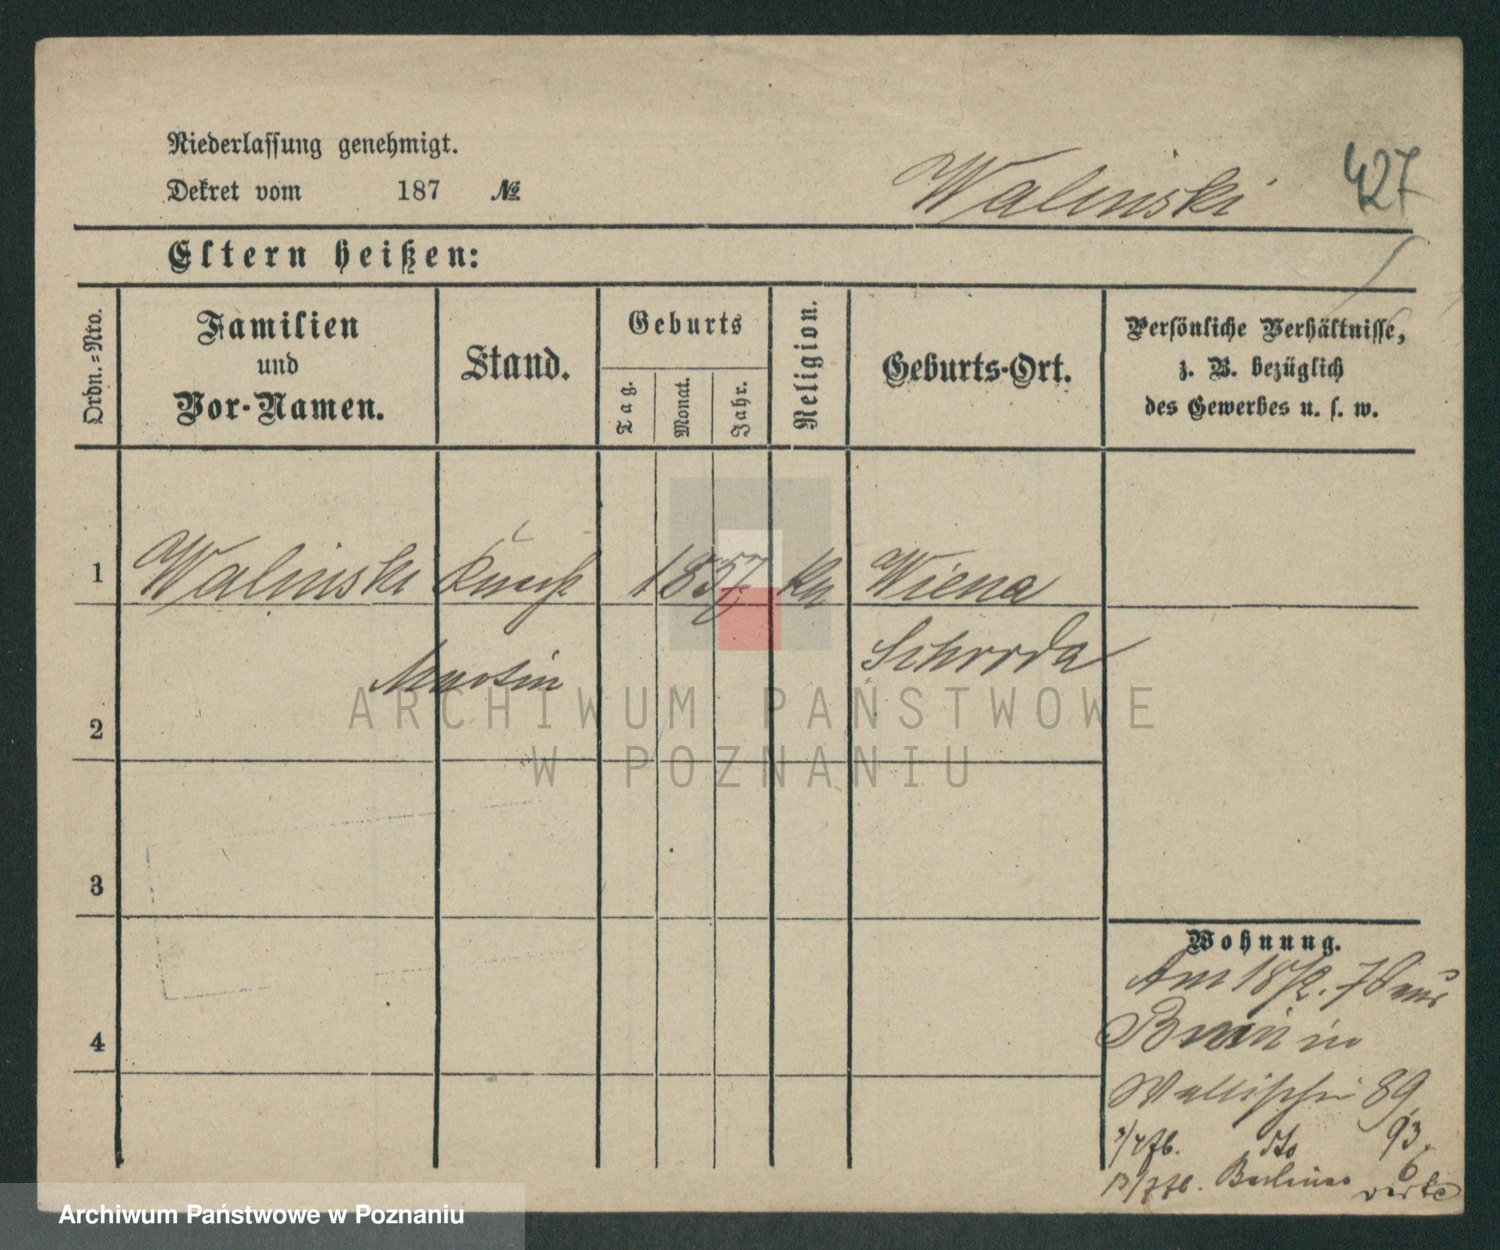 Niederlassung genehmigt.
Dekret vom 187 №
Walinski 427
Eltern heißen:
Ordn.=Nro.
Familien
und
Vor-Namen.
Stand.
Geburts
Tag.
Monat.
Jahr.
Religion.
Geburts-Ort.
Persönliche Verhältnisse,
z. B. bezüglich
des Gewerbes u. s. w.
1 Walinski 1857 Wiena
Schroda
Martin
2
3
4
Wohnung.
Am 18/2. 78 aus
Bnin in
Wallischei 89,
93,
6
ARCHIWUM PAŃSTWOWE
W POZNANIU
Archiwum Państwowe w Poznaniu